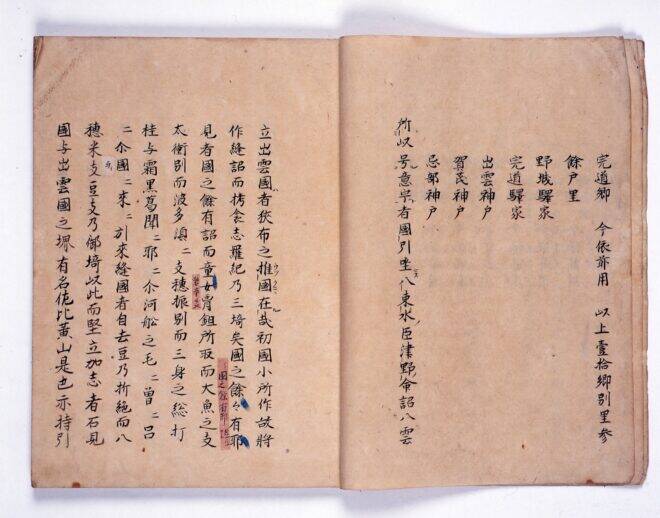 宍道郷 今依前用 以上壹拾郷別里参
餘戸里
野城驛家
宍道驛家
出雲神戸
賀茂神戸
忌部神戸
所以号意宇者國引坐八束水臣津野命詔八雲
立出雲國者狭布之推國在哉初國小所作故将
作縫詔而栲衾志羅紀乃三埼矣國之餘々有耶
見者國之餘有詔而童女胷鉏所取而大魚之支
太衝別而波多湏々支穂振別而三身之綂打
桂与霜黒葛聞々耶々尒河舩之毛々曽々呂
々尒國々来々引来縫國者自去豆乃折絶而八
穂米支豆支乃御埼以此而堅立加志者石見
國与出雲國之堺有名佐比賣山是也亦持引